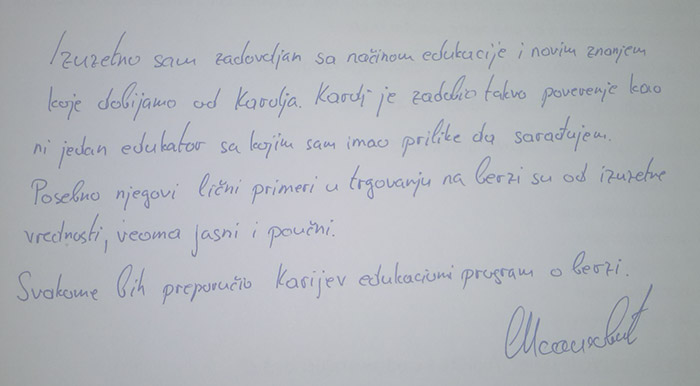 Izuzetno sam zadovoljan sa načinom edukacije i novim znanjem
koje dobijamo od Karolja. Karolj je zadobio takvo poverenje kao
ni jedan edukator sa kojim sam imao prilike da sarađujem.
Posebno njegovi lični primeri u trgovanju na berzi su od izuzetne
vrednosti, veoma jasni i poučni.
Svakome bih preporučio Karijev edukacioni program o berzi.